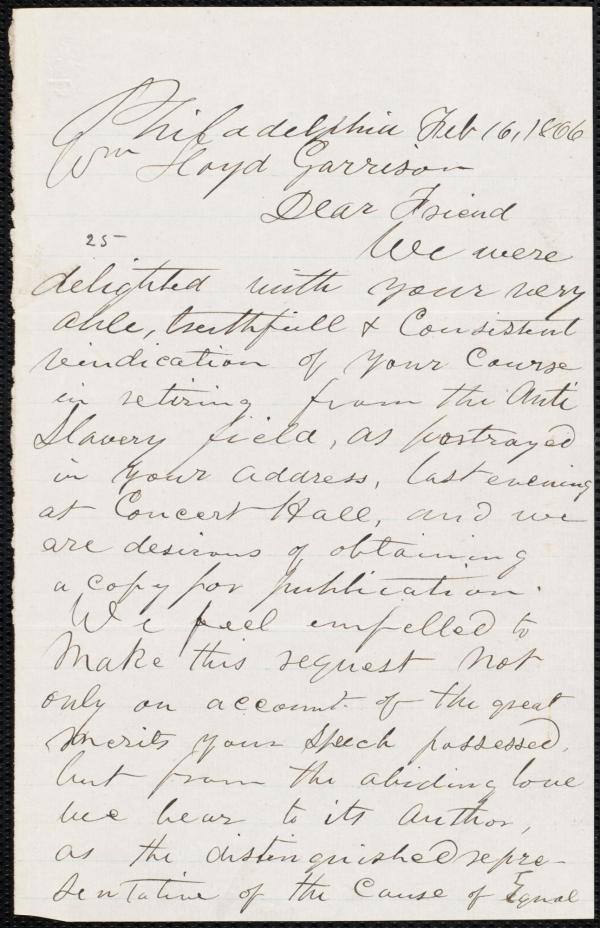 Philadelphia Feb 16, 1866
Wm Lloyd Garrison
Dear Friend
25
We were
delighted with your very
able, truthfull & Consistent
vindication of your Course
in retiring from the Anti
Slavery field, as portrayed
in your address, last evening
at Concert Hall, and we
are desirous of obtaining
a copy for publication.
We feel impelled to
Make this request Not
only on account of the great
Merits your speech possessed,
but from the abiding love
we bear to its Author,
as the distinguished repre-
sentative of the Cause of Equal